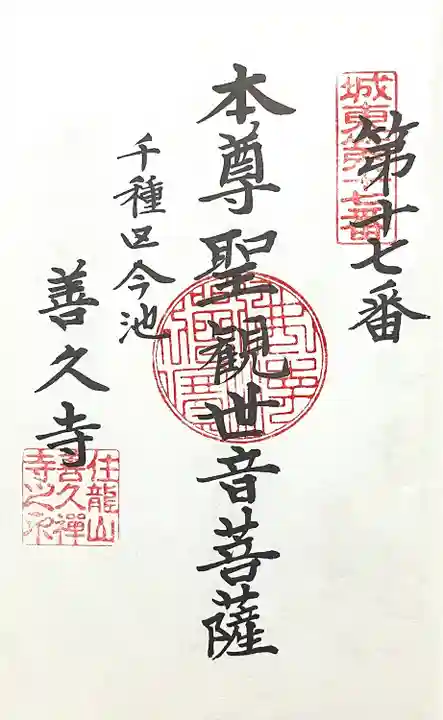 第十七番
本尊聖観世音菩薩
千種区今池
善久寺
住龍山
善久禅
寺之印